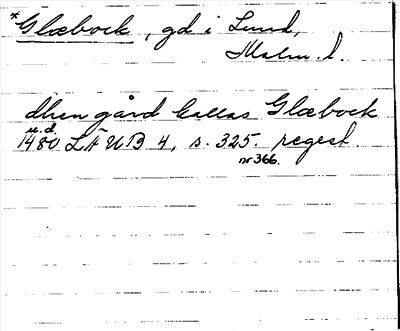 *Glæbock, gd i Lund,
Malm. l.
dhen gård kallas Glæbock
u.d.
1480 LÄUB 4, s. 325. regest.
nr 366.